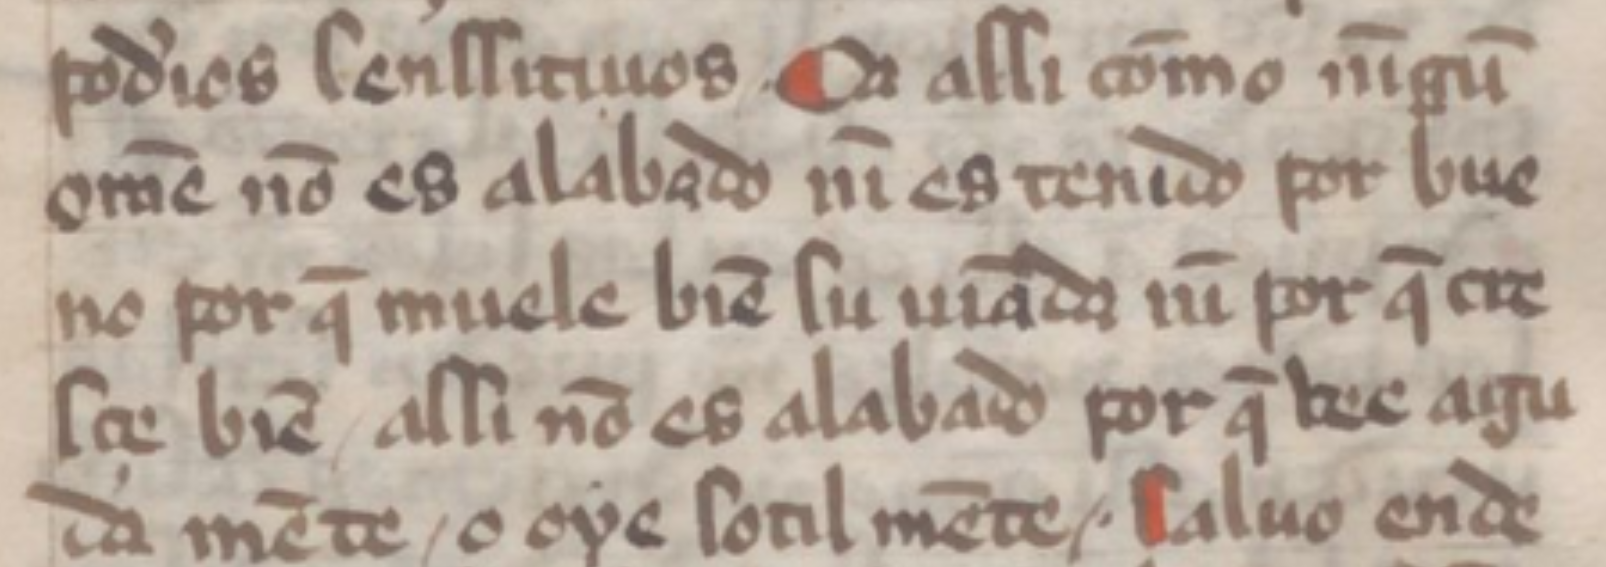 pod'ies senssitiuos. Ca assi cōmo nīgū
om̄e nō es alabado nī es tenido por bue
no por q̄ muele biē su uiāda nī por q̄ cre
sçe biē / assi nō es alabado por q̄ vee agu
da mēte / o oye sotil mēte /. Saluo ende